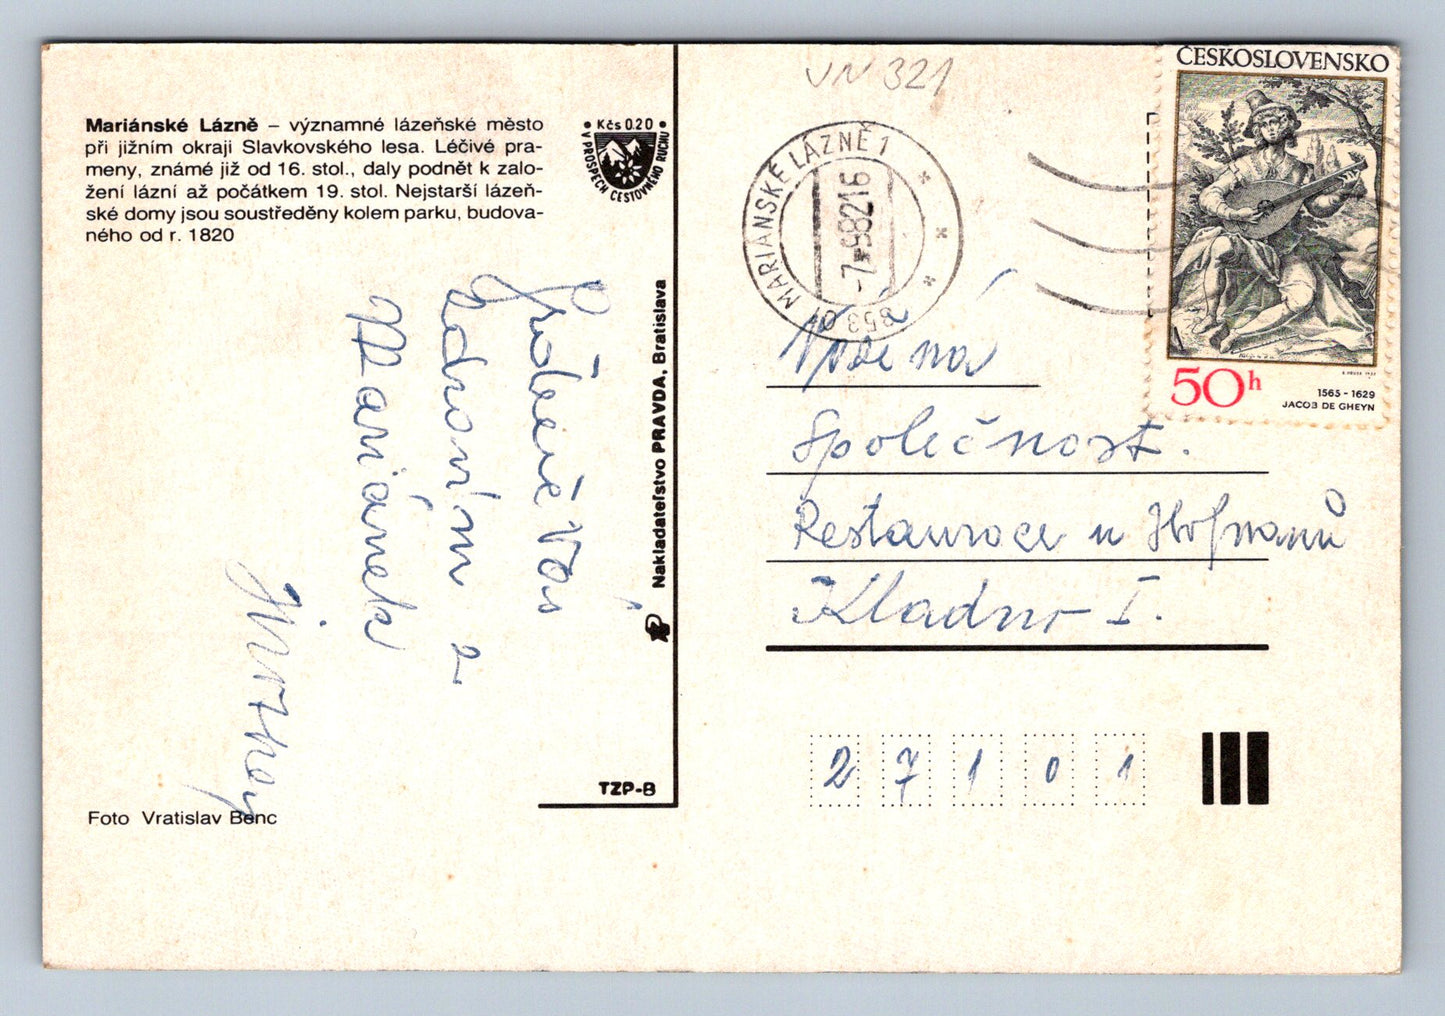 Mariánské Lázně – významné lázeňské město
při jižním okraji Slavkovského lesa. Léčivé pra-
meny, známé již od 16. stol., daly podnět k zalo-
žení lázní až počátkem 19. stol. Nejstarší lázeň-
ské domy jsou soustředěny kolem parku, budova-
ného od r. 1820
• Kčs 0.20 •
V PROSPĚCH CESTOVNÉHO RUCHU
Srdečně Vás
zdravím z
Mariánek
Foto Vratislav Benc
Nakladateľstvo PRAVDA, Bratislava
TZP-B
VN 321
353 01 MARIÁNSKÉ LÁZNĚ 1
-7.-9.82 16
ČESKOSLOVENSKO
50h
1565 - 1629
JACOB DE GHEYN
Vážená
Společnost.
Restaurace u Hofmanů
Kladno I.
27101